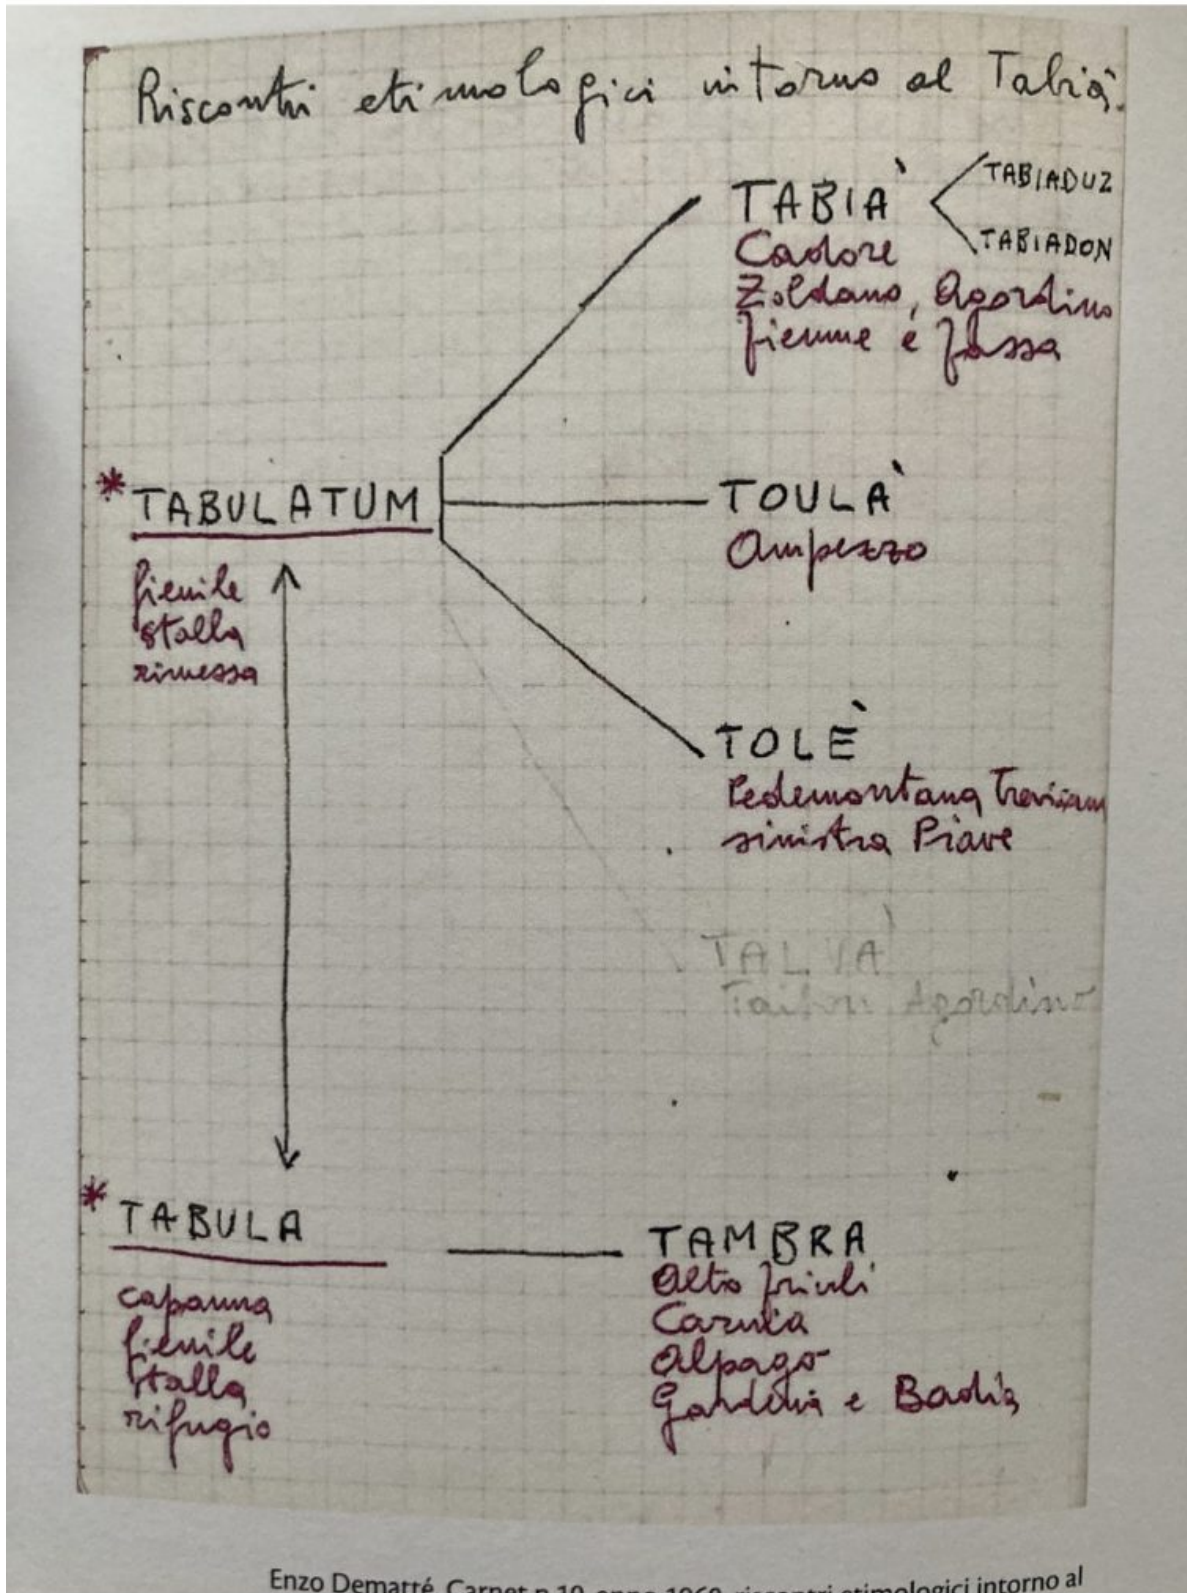 Riscontri etimologici intorno al Tabià.
TABIÀ
TABIADUZ
TABIADON
Cadore
Zoldano, Agordino
fiemme e fassa
* TABULATUM
fienile
stalla
rimessa
TOULÀ
Ampezzo
TOLÈ
Pedemontana Trevisana
sinistra Piave
TALVÀ
Agordino
* TABULA
capanna
fienile
stalla
rifugio
TAMBRA
Alto friuli
Carnia
Alpago
Gardena e Badia
Enzo Dematté, Carnet n.10, anno 1960, riscontri etimologici intorno al